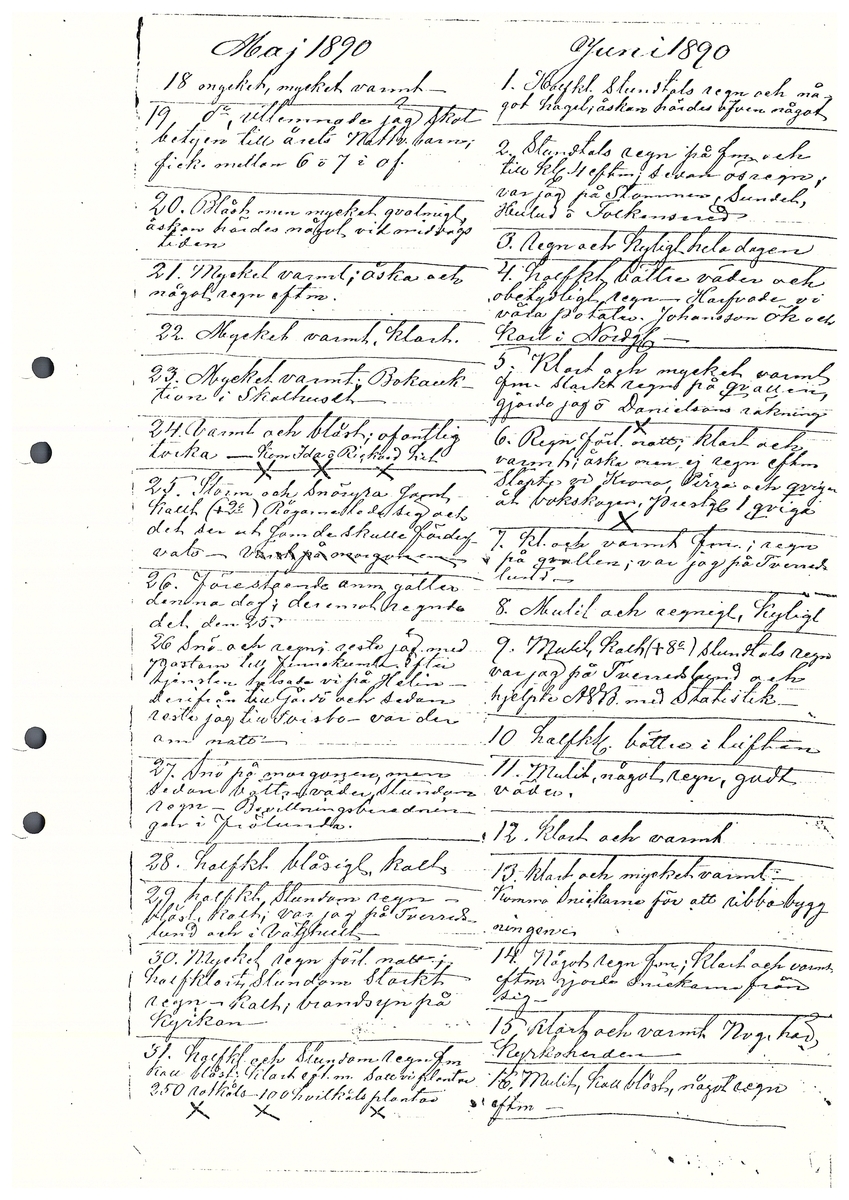 Maj 1890
18 mycket, mycket varmt
19, do, utlemnade jag skol
betyen till årets Nattv. barn;
fick mellan 6 o 7 i of.
20. Blåst men mycket qvalmigt,
åskan hördes något vid middags
tiden
21. Mycket varmt; åska och
något regn eftm.
22. Mycket varmt, klart.
23. Mycket varmt; Bokauk-
tion i Skolhuset
24. Varmt och blåst; ofantlig
torka — Kom Ida o Rickard hit
25. Storm och snöyra samt
kallt (+2°) Rågarne lade sig och
det ser ut som de skulle förderf-
vats — på morgonen
26. Förestående anm. gäller
denna dag; deremot regnade
det den 25.
26 Snö och regn; reste jag med
till efter
tjensten helsade vi på
derifrån till och sedan
reste jag till — var der
om natt
27. Snö på morgonen, men
sedan bättre väder, stundom
regn — Bevillningsberednin-
gar i Frölunda.
28. halfkl blåsigt, kallt
29. halfkl, stundom regn —
blåst, kallt; var jag på Tverreds-
lund och i
30. Mycket regn förl. natt;
halfklart, stundom starkt
regn — kallt; brandsyn på
Kyrkan
31. halfkl och stundom regn fm
kall blåst; klart eft.m. satt vi plantor
250 rotkåls 100 hvitkåls plantor
Juni 1890
1. Halfkl. Stundtals regn och nå-
got hagel; åskan hördes äfven något
2. Stundtals regn på fm. och
till kl. 4 eftm; sedan ösregn;
var jag på Stommen, Sundet,
o
3. regn och kyligt hela dagen
4. halfkl, bättre väder och
obetydligt regn — Harfvade vi
våra potatis. Johansson och
Karl i
5. Klart och mycket varmt
fm. starkt regn på qvällen,
gjorde jag o Danielsons räkning
6. Regn förl. natt; klart och
varmt; åska men ej regn eftm
Släpte vi och qviga
åt bokskogen, 1 qviga
7. Kl. och varmt fm.; regn
på qvällen; var jag på Tverreds-
lund
8. Mulit och regnigt, kyligt
9. Mulit, kallt (+8°) stundtals regn
var jag på Tverredslund och
hjelpte med Statistik
10 halfkl. bättre i luften
11. Mulit, något regn, godt
väder.
12. Klart och varmt
13. Klart och mycket varmt;
Kommo snickarna för att ribba bygg
ningen
14. Något regn fm; klart och varmt
eftm. gjorde snickarna från
sig
15 Klart och varmt
Kyrkoherden
16. Mulit, kall blåst, något regn
eftm